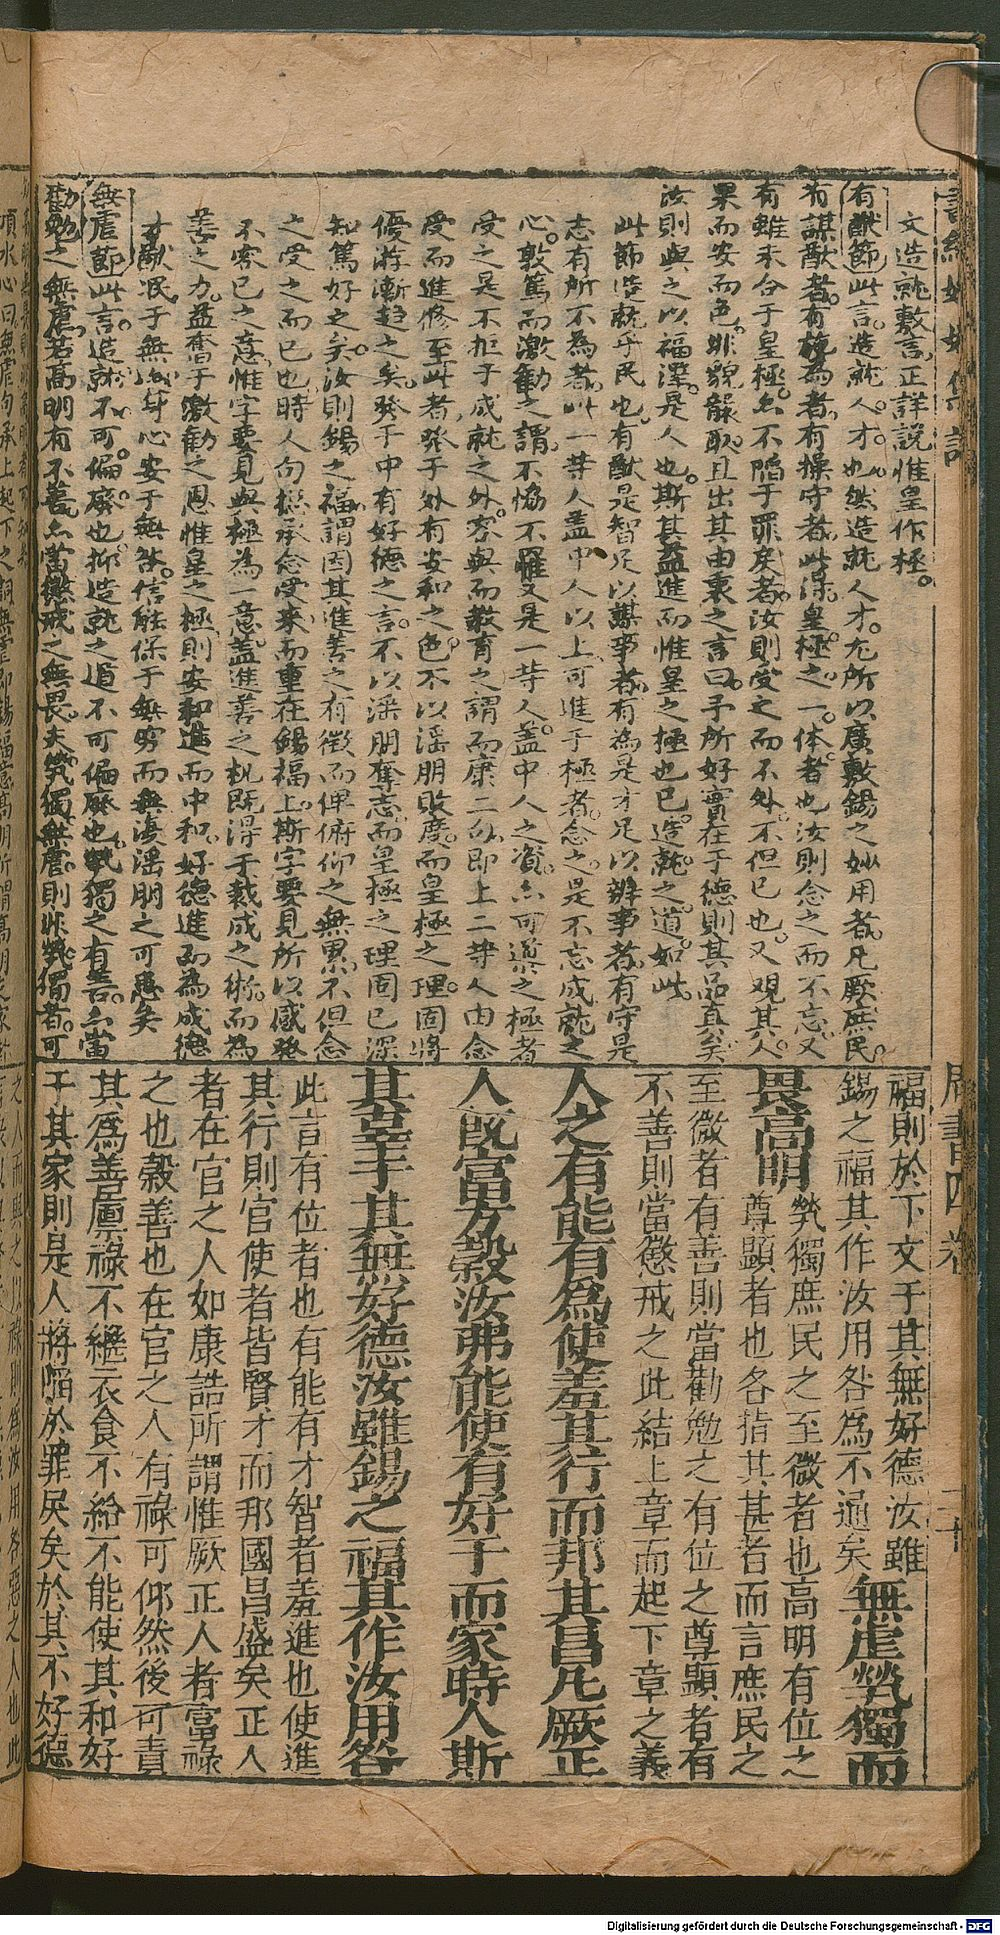 文造就敷言正詳說惟皇作極。
有猷節此言造就人才也然造就人才尤所以廣敷錫之妙用者凡厥庶民
有謀猷者有施為者有操守者此深皇極之一体者也汝則念之而不忘又
有雖未合于皇極亦不陷于罪戾者汝則受之而不外不但已也又觀其人
果而安而色非貌飾取且出其由衷之言曰予所好實在于德則其品真矣
汝則與之以福澤是人也斯其益進而惟皇之極也已造就之道如此
此節造就乎民也有猷是智足以謀事者有為是才足以辨事者有守是
志有所不為者此一等人盖中人以上可進于極者念之是不忘成就之
心敦篤而激勸之謂不恊不罹又是一等人盖中人之資亦可進之極者
受之是不拒于成就之外容與而教育之謂而康二句即上二等人由念
受而進修至此者發于外有安和之色不以淫朋敗度而皇極之理固將
優游漸趋之矣發于中有好德之言不以淫朋奪志而皇極之理固已深
知篤好之矣汝則錫之福謂因其進善之有徵而俾俯仰之無累不但念
之受之而已也時人句摠承念受來而重在錫福上斯字要見所以感發
不容已之意惟字要見與極為一意盖進善之机既淂于裁成之術而為
善之力益奮于激勸之恩惟皇之極則安和進而中和好德進而為成德
才猷泯于無為身心安于無咎信能保于無穷而無淺淫朋之可患矣
無虐節此言造就不可偏廢也抑造就之道不可偏廢也煢獨之有善亦當
勸勉之無虐若高明有不善亦當懲戒之無畏夫煢獨無虐則非煢獨者可
周書四卷 二十
福則於下文于其無好德汝雖
錫之福其作汝用咎為不通矣 無虐煢獨而
畏高明 煢獨庶民之至微者也高明有位之
尊顯者也各指其甚者而言庶民之
至微者有善則當勸勉之有位之尊顯者有
不善則當懲戒之此結上章而起下章之義
人之有能有為使羞其行而邦其昌凡厥正
人既富方穀汝弗能使有好于而家時人斯
其辜于其無好德汝雖錫之福其作汝用咎
此言有位者也有能有才智者羞進也使進
其行則官使者皆賢才而邦國昌盛矣正人
者在官之人如康誥所謂惟厥正人者富祿
之也穀善也在官之人有祿可仰然後可責
其為善廩祿不繼衣食不給不能使其和好
于其家則是人將陷於罪戾矣於其不好德
Digitalisierung gefördert durch die Deutsche Forschungsgemeinschaft - DFG